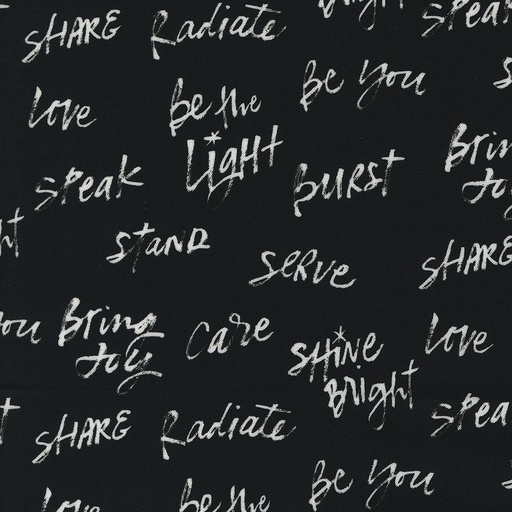 Bright
Speak
SHARE Radiate
Be You
Love Be the
LIGHT
Bring
Joy
Speak
BURST
STAND
Serve
SHARE
Bring
Joy
Care
SHINE
BRIGHT
Love
Speak
SHARE Radiate
Be You
Love Be the